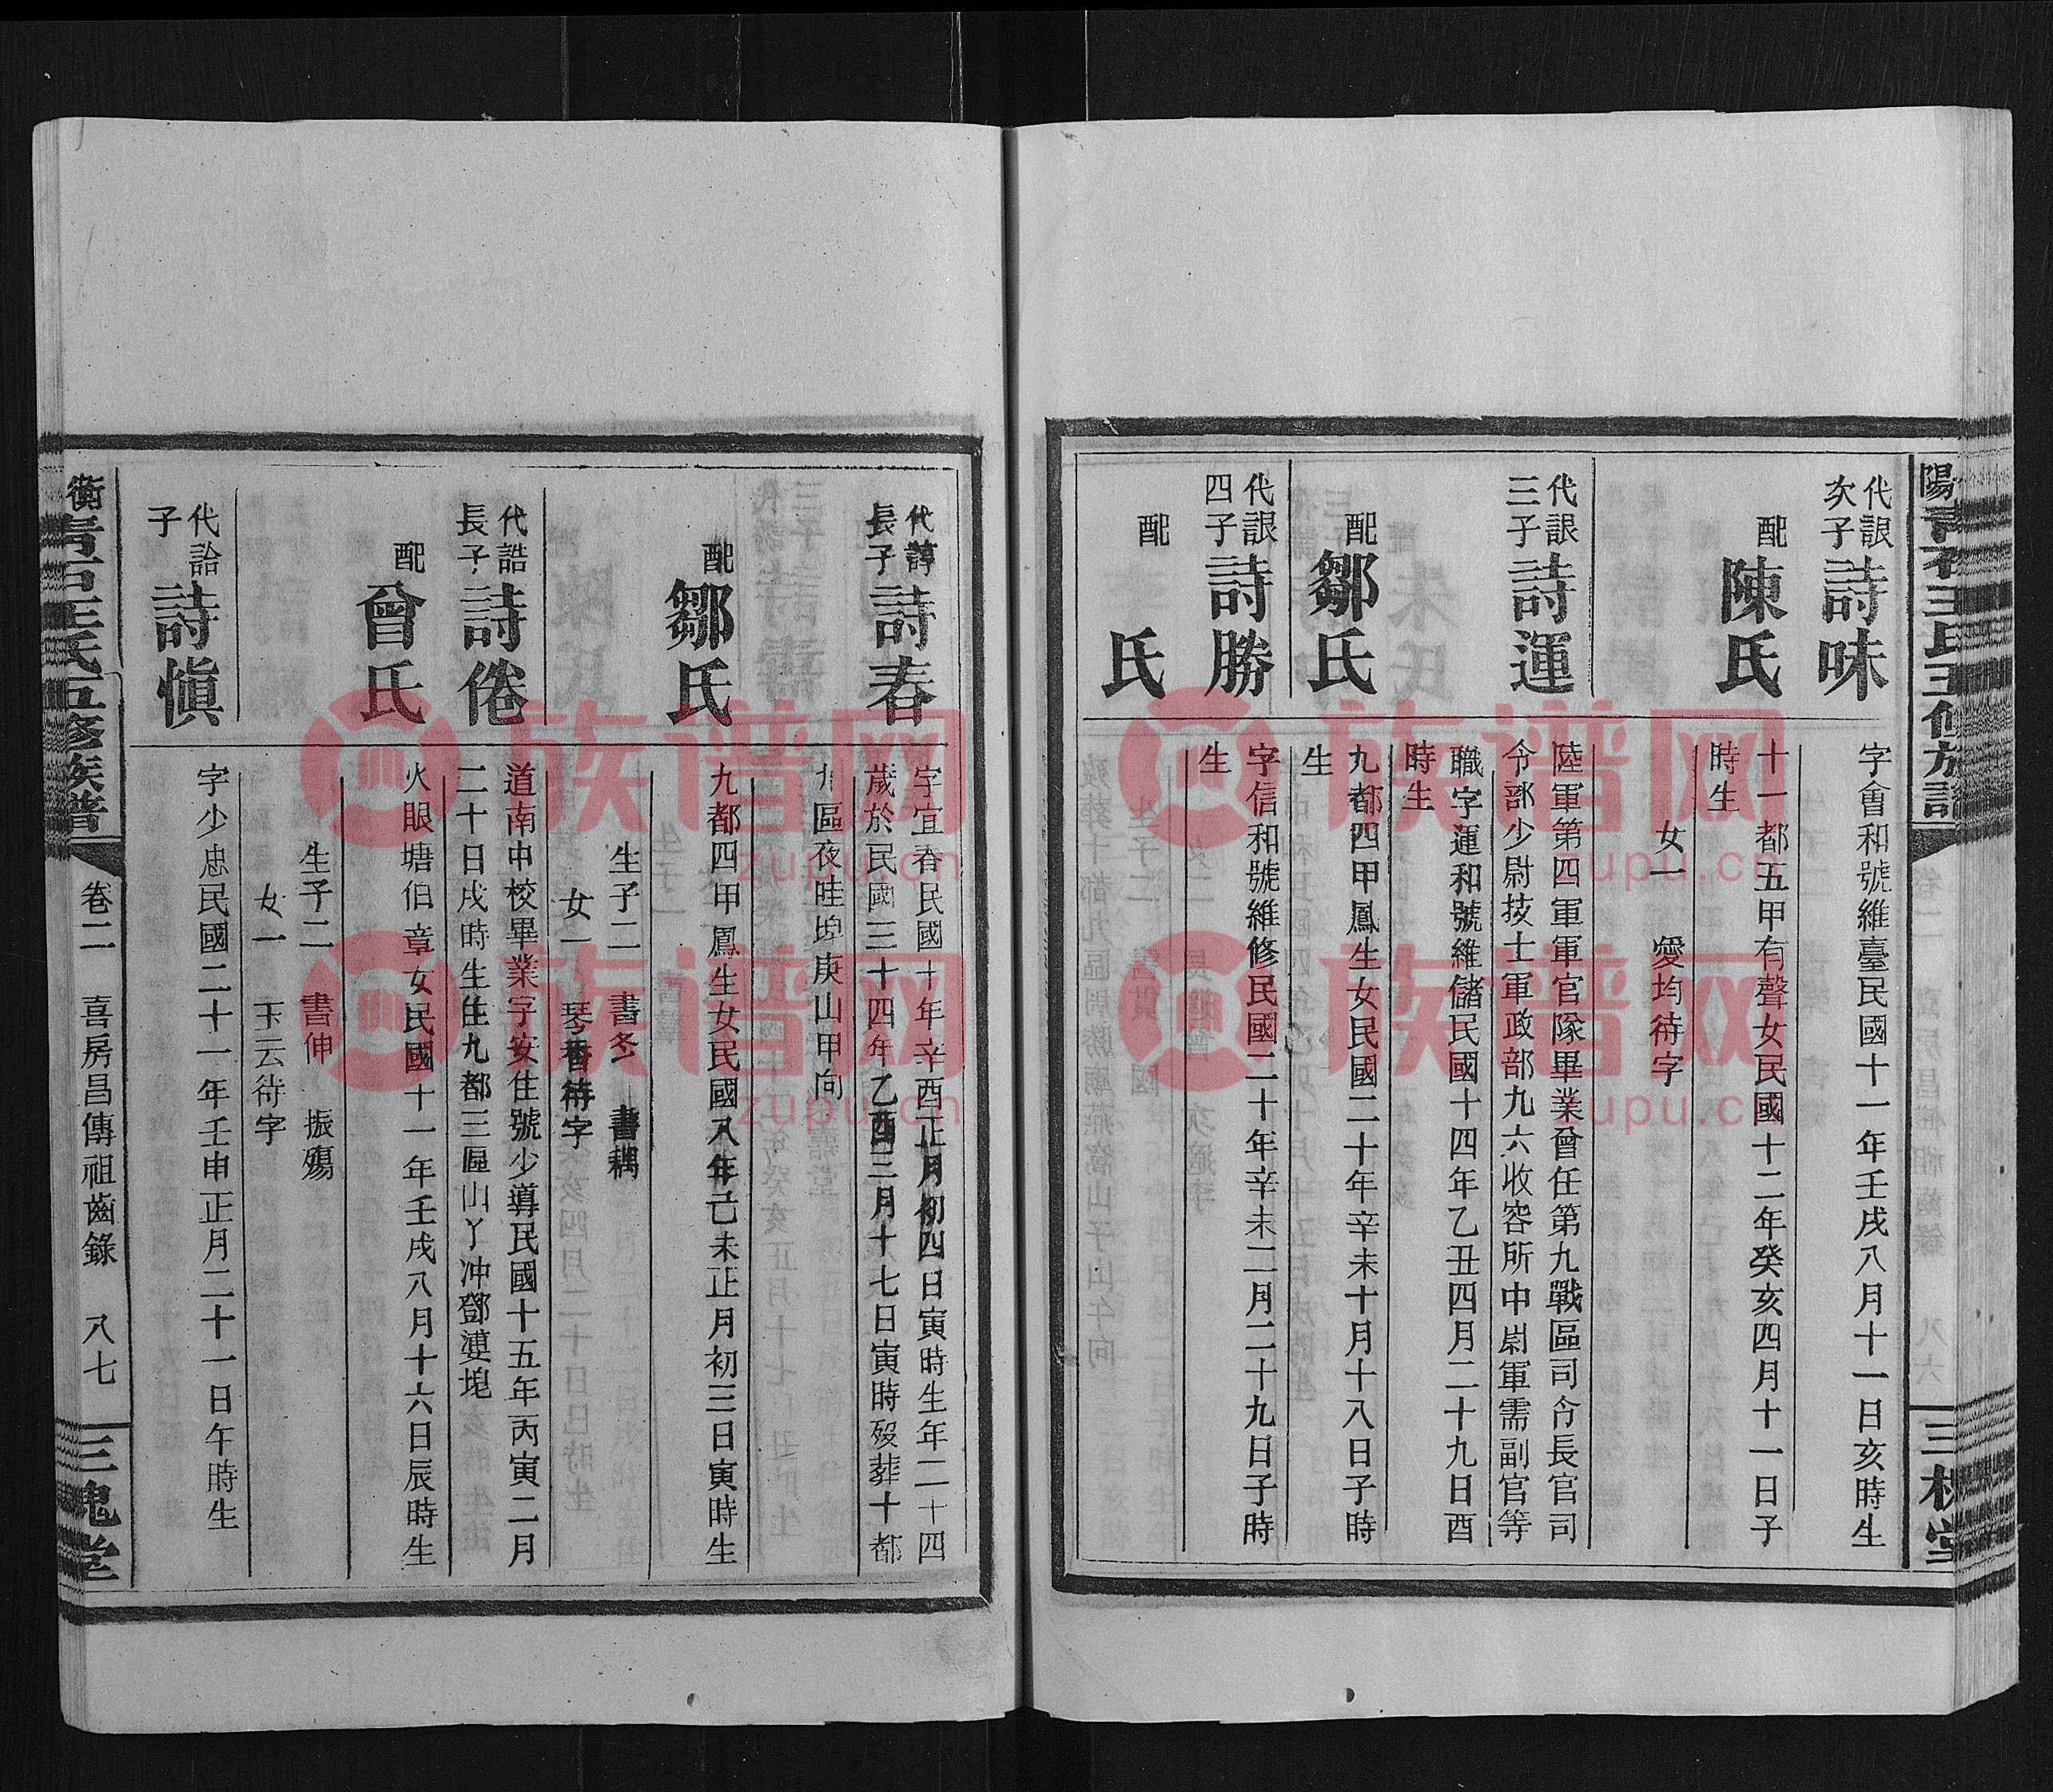 代詪
次子
詩味
字會和號維臺民國十一年壬戌八月十一日亥時生
配
陳氏
十一都五甲有聲女民國十二年癸亥四月十一日子
時生
女一 愛均待字
代詪
三子
詩運
陸軍第四軍軍官隊畢業曾任第九戰區司令長官司
令部少尉技士軍政部九六收容所中尉軍需副官等
職字運和號維儲民國十四年乙丑四月二十九日酉
時生
配
鄒氏
九都四甲鳳生女民國二十年辛未十月十八日子時
生
代詪
四子
詩勝
字信和號維修民國二十年辛未二月二十九日子時
生
配
氏
代諄
長子
詩春
字宜春民國十年辛酉正月初四日寅時生年二十四
歲於民國三十四年乙酉三月十七日寅時歿葬十都
九區夜眭塊庚山甲向
配
鄒氏
九都四甲鳳生女民國八年己未正月初三日寅時生
生子二 書冬 書耦
女一 琴香待字
代誥
長子
詩倦
道南中校畢業字安住號少導民國十五年丙寅二月
二十日戌時生住九都三區山丫冲鄧婁塊
配
曾氏
火眼塘伯章女民國十一年壬戌八月十六日辰時生
生子二 書伸 振殤
女一 玉云待字
代詥
子
詩愼
字少忠民國二十一年壬申正月二十一日午時生
衡
王氏五修族譜
卷二 喜房昌傳祖齒錄 八七
三槐堂
族谱网
zupu.cn
族谱网
zupu.cn
族谱网
zupu.cn
族谱网
zupu.cn